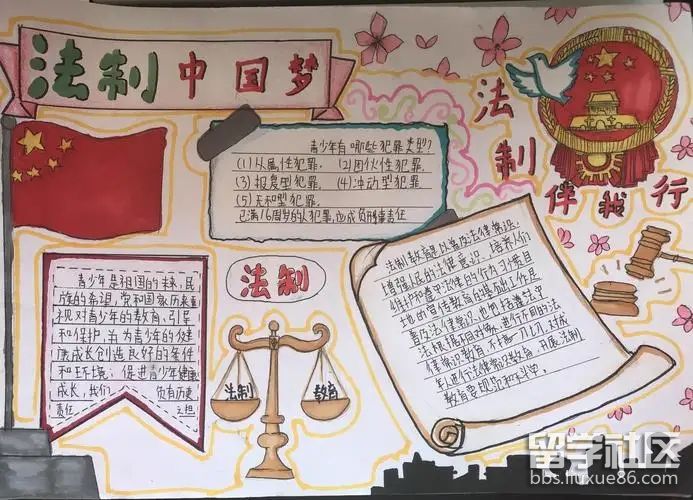 法制中国梦
法制
伴我行
青少年有哪些犯罪类型?
(1)从属性犯罪, (2)团伙性犯罪,
(3)报复型犯罪, (4)冲动型犯罪,
(5)无知型犯罪,
已满16周岁的人犯罪,应成负刑事责任
青少年是祖国的未来,民
族的希望,党和国家历来重
视对青少年的教育、引导
和保护,并为青少年的健
康成长创造良好的条件
和环境、促进青少年健康
成长,我们 负有历史
责任
法制
法制 教育
法制教育是以普及法律常识,
增强人民的法律意识、培养人们
维护和遵守法律的行为习惯为目
地的宣传教育的基础工作是
普及法律常识,也就是遵法守
法根据不同对象、进行不同的法
律常识教育,不搞一刀切,对成
年人进行法律常识教育,开展法制
教育要规范和科学
留学社区
bbs.liuxue86.com